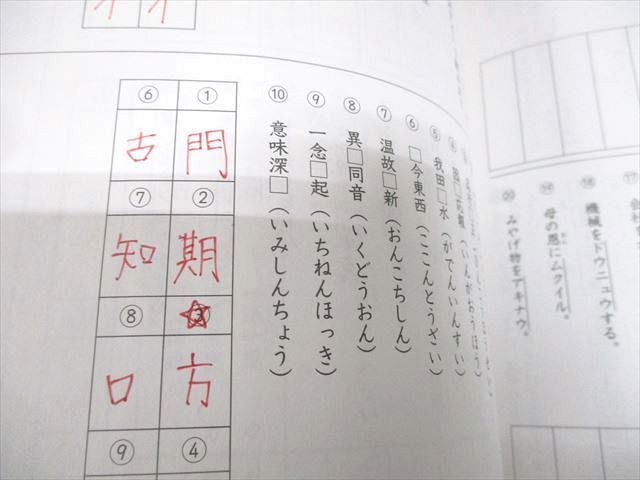 ⑳ みやげ物をアキナウ。
⑲ 母の恩にムクイル。
⑱ 機械をドウニュウする。
⑰
④ 因□応報（いんがおうほう）
⑤ 我田□水（がでんいんすい）
⑥ □今東西（ここんとうざい）
⑦ 温故□新（おんこちしん）
⑧ 異□同音（いくどうおん）
⑨ 一念□起（いちねんほっき）
⑩ 意味深□（いみしんちょう）
① 門
② 期
③ 方
④
⑥ 古
⑦ 知
⑧ 口
⑨